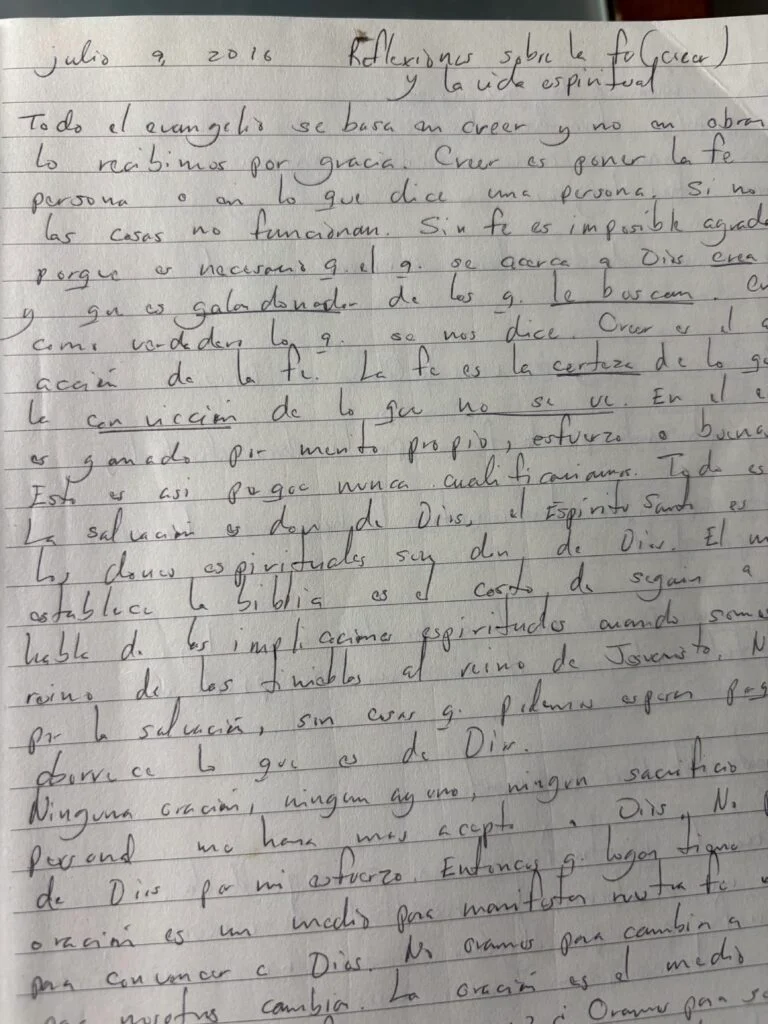 julio 9, 2016 Reflexiones sobre la fe (creer)
y la vida espiritual
Todo el evangelio se basa en creer y no en obras
lo recibimos por gracia. Creer es poner la fe
persona o en lo que dice una persona. Si no
las cosas no funcionan. Sin fe es imposible agrada
porque es necesario q. el q. se acerca a Dios crea
y que es galardonador de los q. le buscan.
como verdadero lo q. se nos dice. Creer es el
acción de la fe. La fe es la certeza de lo q
la convicción de lo que no se ve. En el
es ganado por mérito propio, esfuerzo o buena
Esto es así porque nunca cualificaríamos. Todo es
La salvación es don de Dios, el Espíritu Santo es
los dones espirituales son don de Dios. El
establece la biblia es el costo de seguir a
habla de las implicaciones espirituales cuando somos
reino de las tinieblas al reino de Jesucristo. N
por la salvación, sin cosas q. podemos esperar
aborrece lo que es de Dios.
Ninguna oración, ningun ayuno, ningun sacrificio
personal me hara mas acepto a Dios. No
de Dios por mi esfuerzo. Entonces q. lugar tiene
oración es un medio para manifestar nuestra fe
para convencer a Dios. No oramos para cambiar a
para nosotros cambiar. La oración es el medio
Oramos para